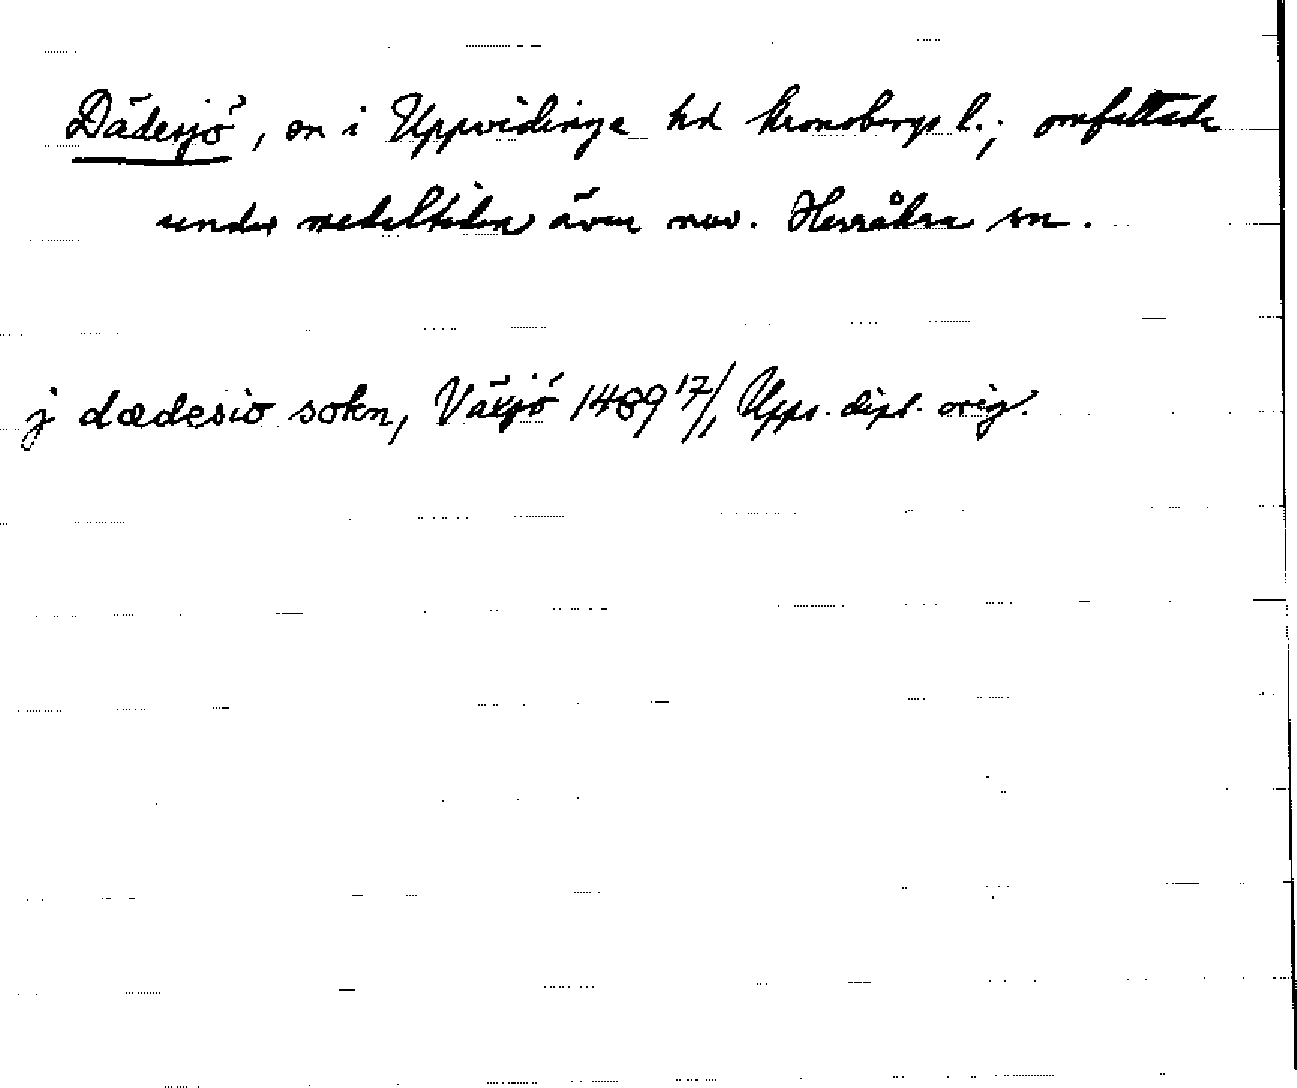 Dädesjö, sn i Uppvidinge hd Kronobergs l.; omfattade
under medeltiden även nuv. Herråkra sn.
j dædesio sokn, Växjö 1489 17/, Upps. dipl. orig.